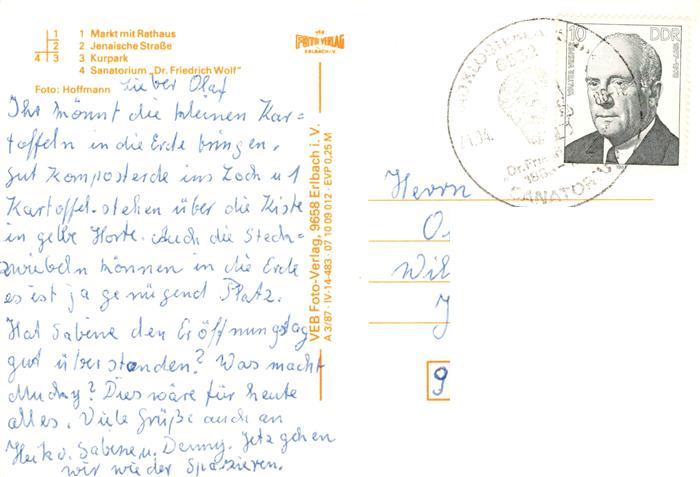 1 1 Markt mit Rathaus
2 2 Jenaische Straße
4 3 3 Kurpark
4 Sanatorium „Dr. Friedrich Wolf"
Foto: Hoffmann
FOTO VERLAG
ERLBACH
Lieber Olaf
Ihr könnt die kleinen Kar=
toffeln in die Erde bringen,
gut Komposterde ins Loch u 1
Kartoffel. stehen über die Kiste
in gelbe Horte. Auch die Steck=
zwiebeln können in die Erde
es ist ja genügend Platz.
Hat Sabine den Eröffnungstag
gut überstanden? Was macht
? Dies wäre für heute
alles. Viele Grüße auch an
Heiko. Sabine u. Denny. Jetz gehen
wir wieder spazieren.
VEB Foto-Verlag, 9658 Erlbach i. V.
A 3/87 · IV-14-483 · 07 10 09 012 · EVP 0,25 M
10 DDR
6532
Dr. Frie
SANATOR
Herrn
O
Wil
J
9